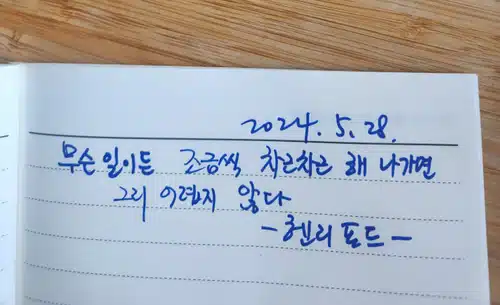 2024. 5. 28.
무슨 일이든 조금씩 차근차근 해 나가면
그리 어렵지 않다
- 헨리 포드 -